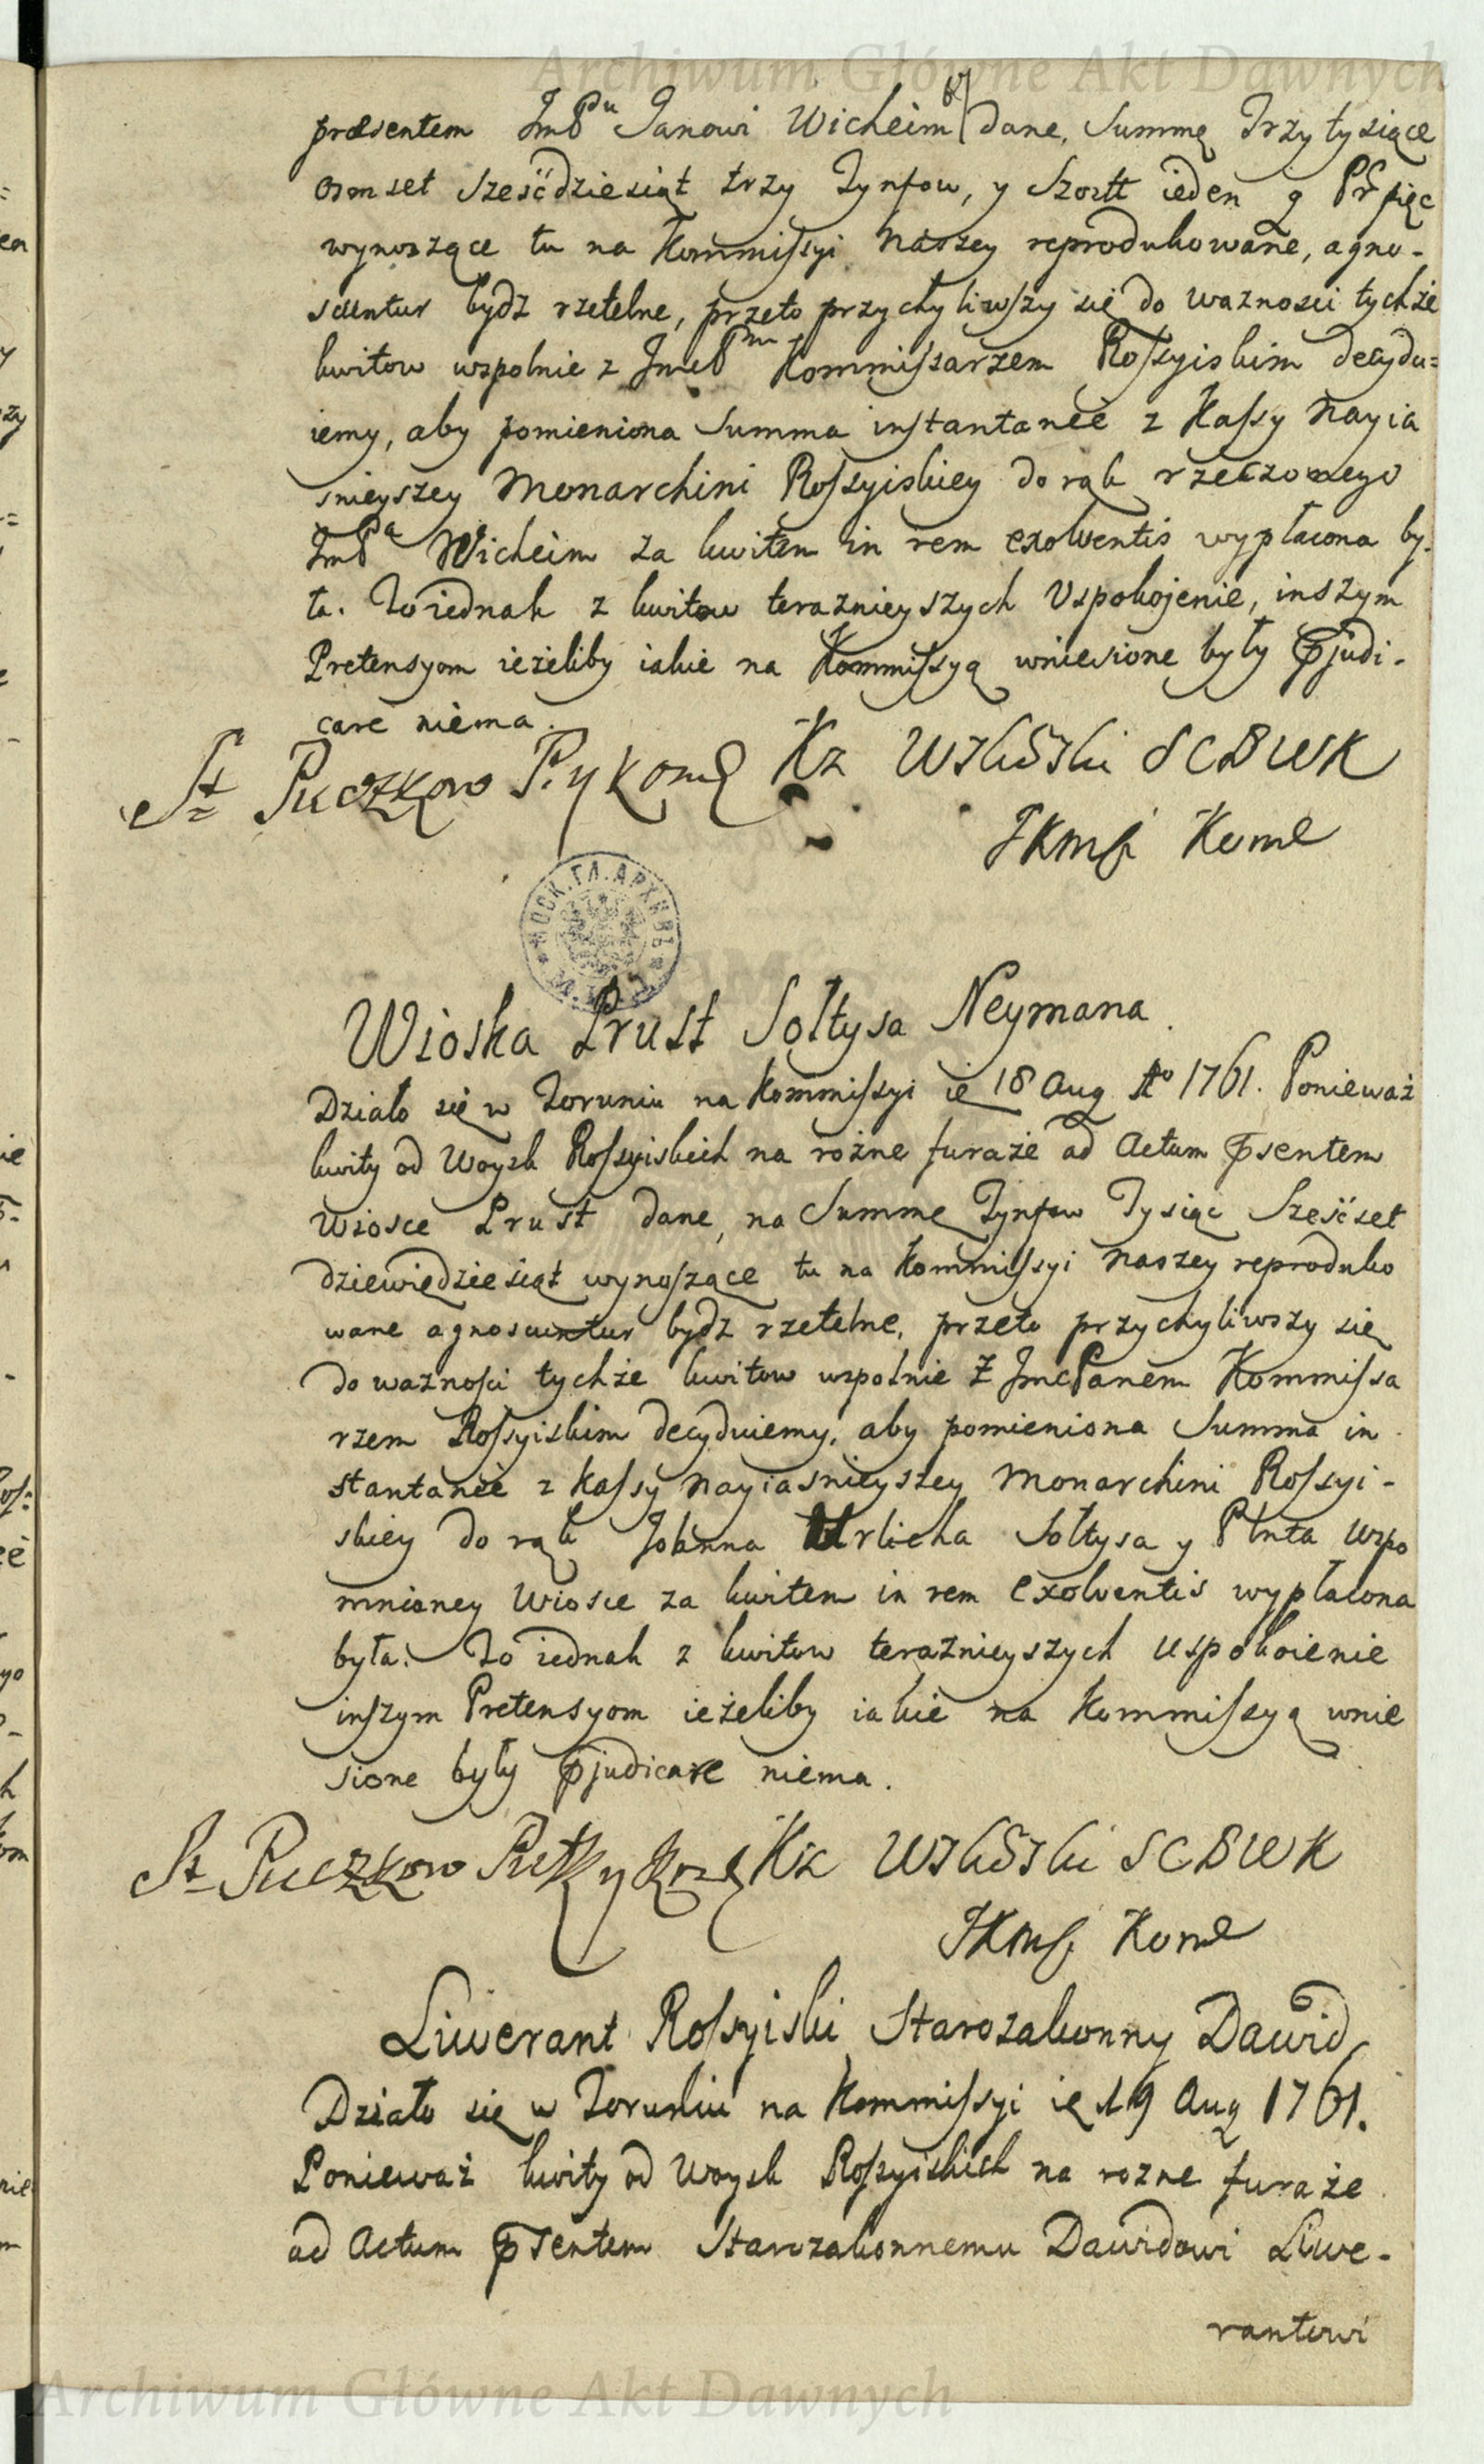 Archiwum Główne Akt Dawnych
præsentem ImP^u Janowi Wicheim dane, Summę Trzy tysiące
osmset sześćdziesiąt trzy Tynfow, y Szostt ieden g Pr pięc
wynoszące tu na Kommissyi Naszey reprodukowane, agno-
scuntur bydz rzetelne, przeto przychyliwszy się do wazności tychże
kwitow wspolnie z JmcP^m Kommissarzem Rossyiskim decydu=
iemy, aby pomieniona Summa instantaneè z Kassy Nayia
snieyszey Monarchini Rossyiskiey do rąk rzeczonego
ImP^a Wicheim za kwitem in rem exolventis wypłacona by-
ła. To iednak z kwitow teraznieyszych Uspokojenie, inszym
Pretensyom ieżeliby iakie na Kommissyą wniesione były p̄judi-
care niema.
St Puczkow Kz Wilski SCBWK
JKMsi Kome
МОСК.ГЛ.АРХИВЪ
Wioska Prust Sołtysa Neymana.
Działo się w Toruniu na Kommissyi ie 18 Aug Ao 1761. Ponieważ
kwity od Woysk Rossyiskich na rożne furaże ad Actum p̄sentem
Wiosce Prust dane, na Summę Tynfow Tysiąc Sześćset
dziewiędziesiąt wynoszące tu na Kommissyi Naszey reproduko
wane agnoscuntur bydz rzetelne, przeto przychyliwszy się
do ważności tychże kwitow wspolnie Z JmcPanem Kommissa
rzem Rossyiskim decyduiemy, aby pomieniona Summa in
stantaneè z Kassy Nayiasnieyszey Monarchini Rossyi-
skiey do rąk Johanna Urlicha Sołtysa y Plnta wspo
mnioney Wiosce za kwitem in rem exolventis wypłacona
była. To iednak z kwitow teraznieyszych uspokoienie
inszym Pretensyom ieżeliby iakie na Kommissyą wnie
sione były p̄judicare niema.
St Puczkow Kz Wilski SCBWK
JKMsi Kome
Liwerant Rossyiski Starozakonny Dawid
Działo się w Toruniu na Kommissyi ie 19 Aug 1761.
Ponieważ kwity od Woysk Rossyiskich na rozne furaże
ad Actum p̄sentem Starozakonnemu Dawidowi Liwe-
rantowi
Archiwum Główne Akt Dawnych